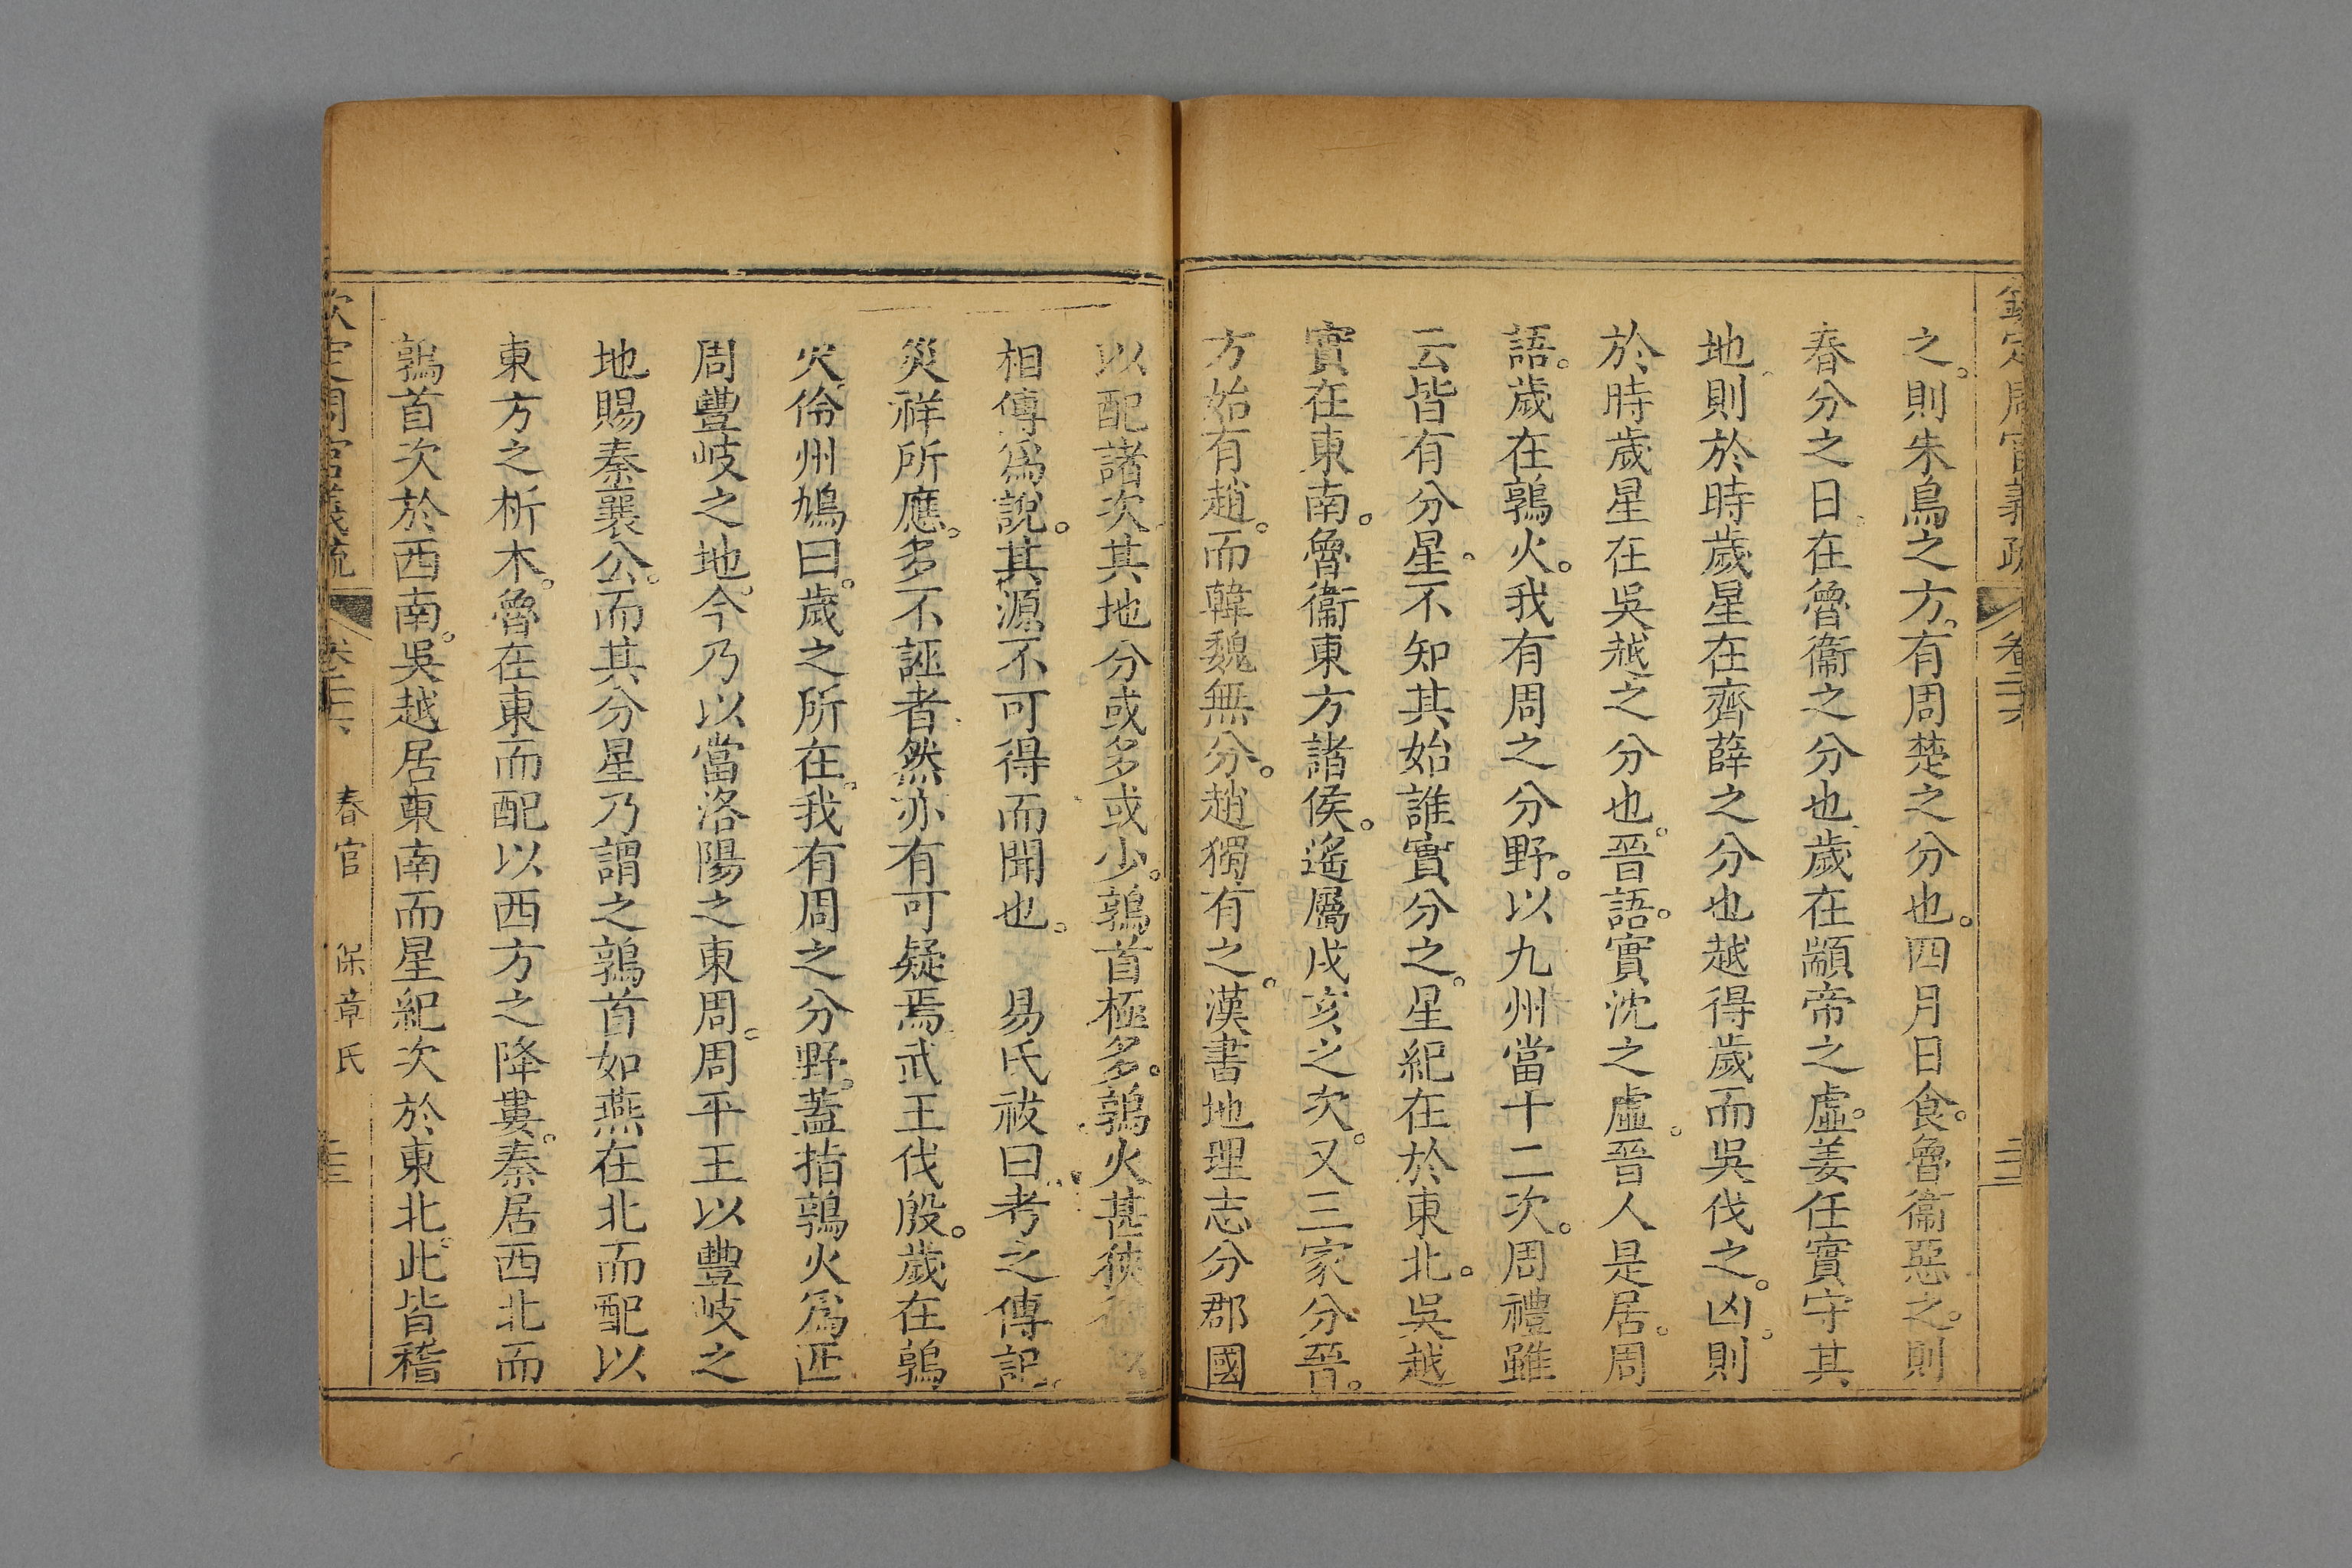 欽定周官義疏 卷二十六
之。則朱鳥之方。有周楚之分也。四月日食。魯衞惡之。則
春分之日。在魯衞之分也。歲在顓帝之虛。姜任實守其
地。則於時歲星在齊薛之分也。越得歲而吳伐之。凶。則
於時歲星在吳越之分也。晉語。實沈之虛。晉人是居。周
語。歲在鶉火。我有周之分野。以九州當十二次。周禮雖
云皆有分星。不知其始誰實分之。星紀在於東北。吳越
實在東南。魯衞東方諸侯。遙屬戌亥之次。又三家分晉。
方始有趙。而韓魏無分。趙獨有之。漢書地理志分郡國
以配諸次。其地分或多或少。鶉首極多。鶉火甚狹
相傳爲說。其源不可得而聞也。 易氏祓曰。考之傳記。
災祥所應。多不誣者。然亦有可疑焉。武王伐殷。歲在鶉
火。伶州鳩曰。歲之所在。我有周之分野。蓋指鶉火爲西
周豐岐之地。今乃以當洛陽之東周。周平王以豐岐之
地賜秦襄公。而其分星乃謂之鶉首。如燕在北而配以
東方之析木。魯在東而配以西方之降婁。秦居西北而
鶉首次於西南。吳越居東南而星紀次於東北。此皆稽
欽定周官義疏 卷二十六 春官 保章氏